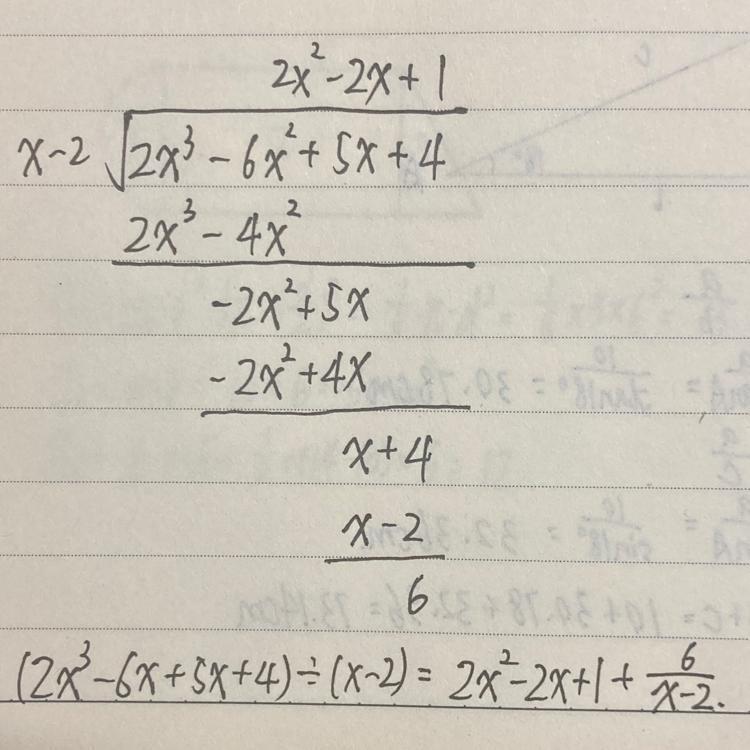 2x² - 2x + 1
x - 2 √2x³ - 6x² + 5x + 4
2x³ - 4x²
-2x² + 5x
-2x² + 4x
x + 4
x - 2
6
(2x³ - 6x + 5x + 4) ÷ (x - 2) = 2x² - 2x + 1 + 6/(x - 2).